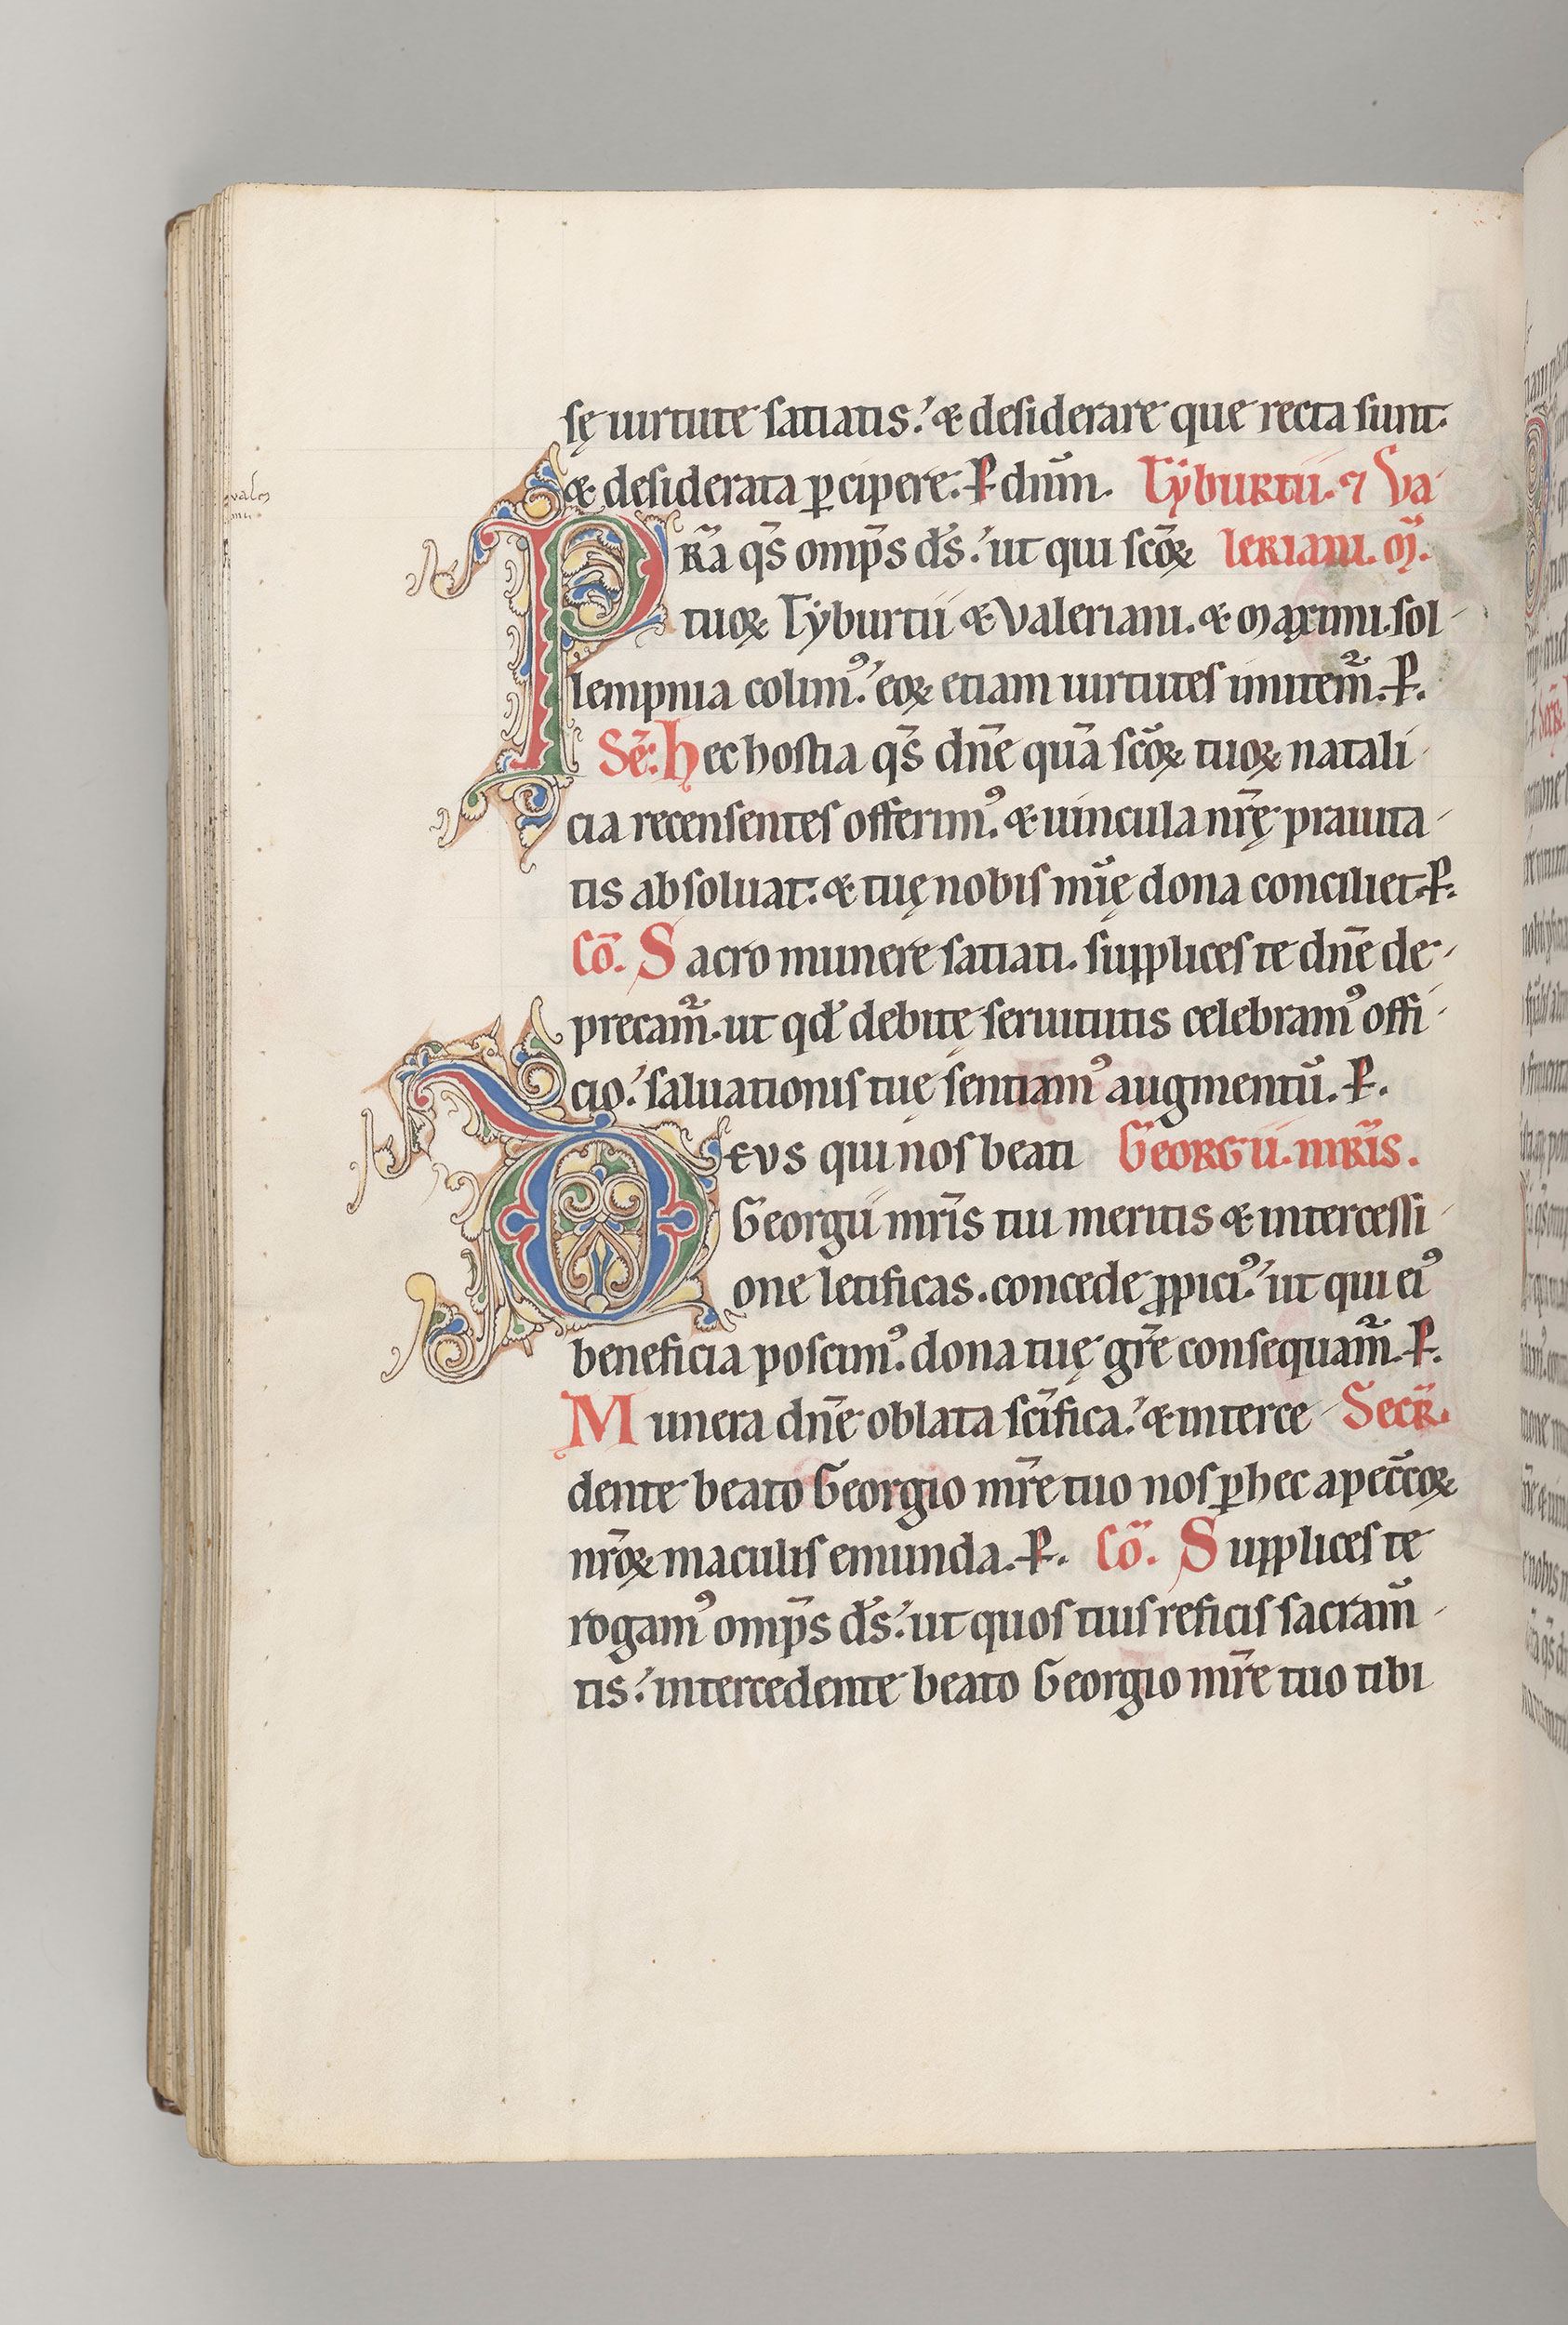 sę uirtute satiatis. & desiderare que recta sunt.
& desiderata ꝑcipere. P̵ dñm. Tyburtii. ⁊ Va-
Pr̄a qs̄ omp̄s ds̄. ut qui sc̄oꝝ leriani. M̄.
tuoꝝ Tyburtii & Valeriani. & Maximi. sol-
lempnia colimꝰ. eoꝝ etiam uirtutes imitem̄. P̵.
Sē. Hec hostia qs̄ dn̄e quā sc̄oꝝ tuoꝝ natali-
cia recensentes offerimꝰ. & uincula nr̄ę prauita-
tis absoluat. & tuę nobis mīę dona conciliet. P̵.
Cō. Sacro munere satiati. supplices te dn̄e de-
precam̄. ut qd̄ debitę seruitutis celebramꝰ offi-
cio. saluationis tuę sentiamꝰ augmentū. P̵.
Deus qui nos beati Georgii. mr̄is.
Georgii mr̄is tui meritis & intercessi-
one letificas. concede ꝓpiciꝰ. ut qui eiꝰ
beneficia poscimꝰ. dona tuę gr̄e consequam̄. P̵.
Munera dn̄e oblata sc̄ifica. & interce- Secr̄.
dente beato Georgio mr̄e tuo nos ꝑ hec a pecc̄oꝝ
nr̄oꝝ maculis emunda. P̵. Cō. Supplices te
rogamꝰ omp̄s ds̄. ut quos tuis reficis sacram̄-
tis. intercedente beato Georgio mr̄e tuo tibi